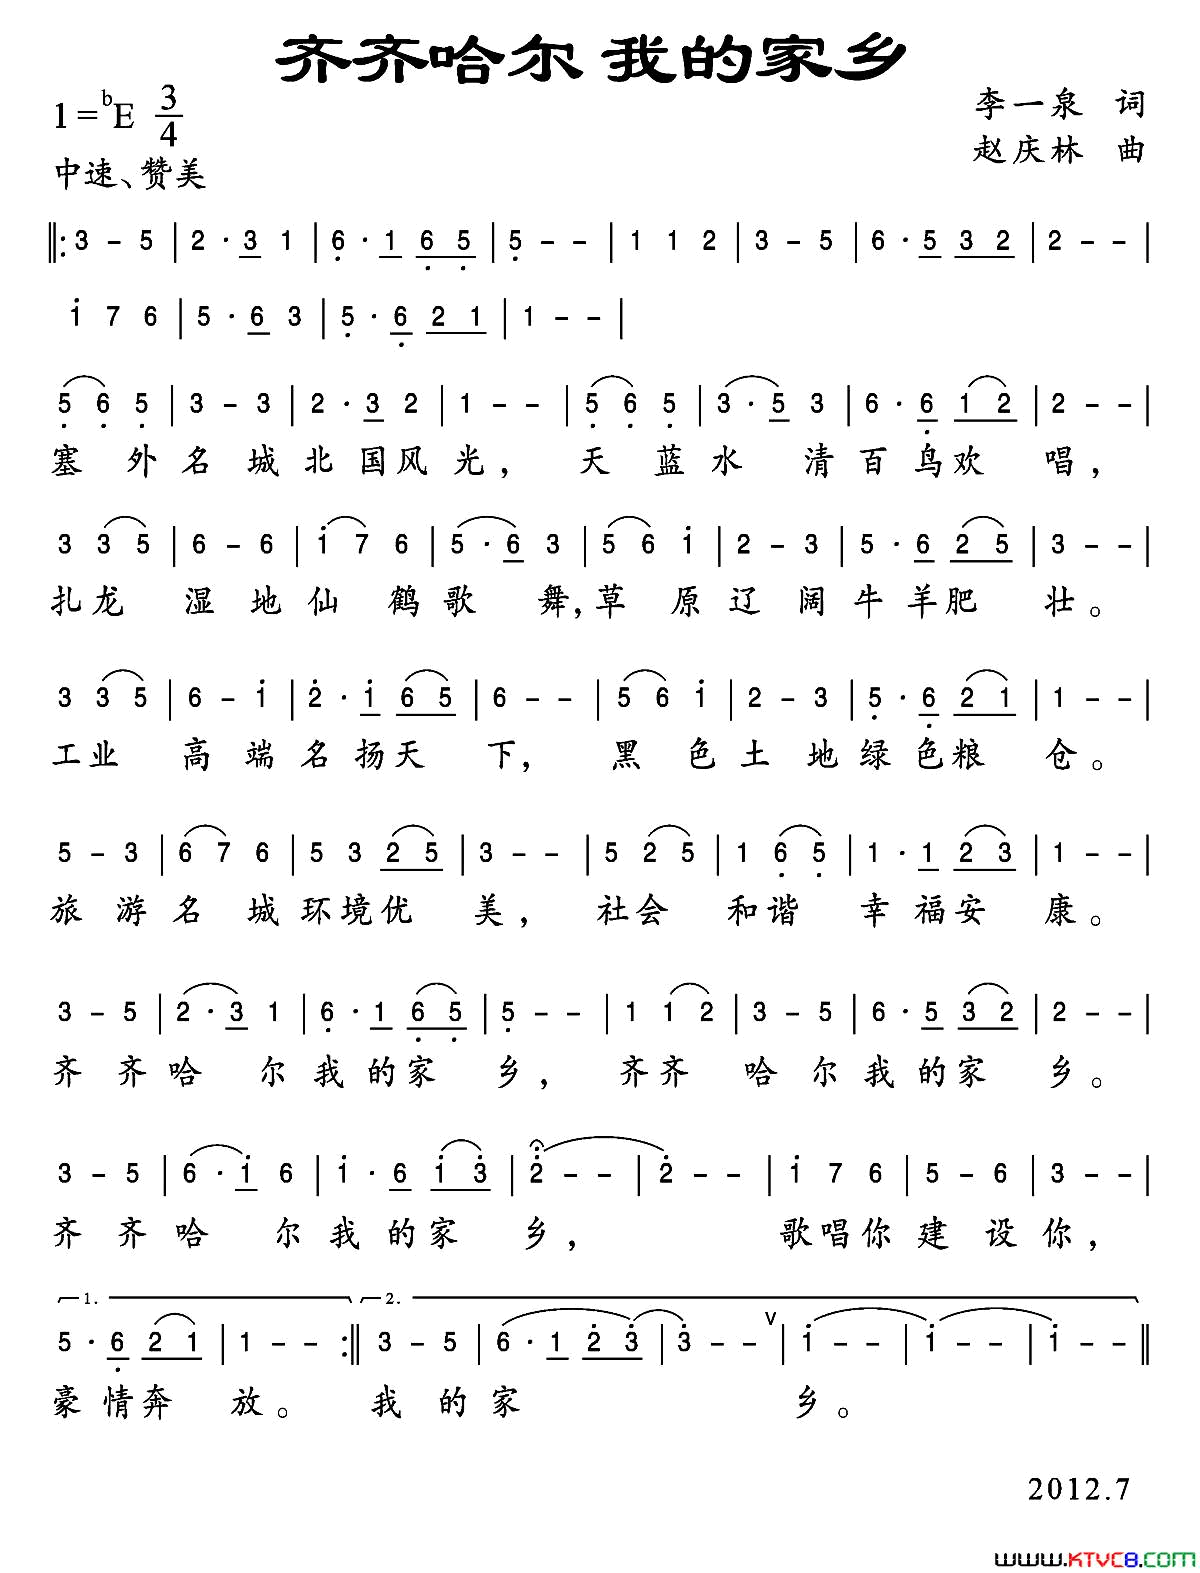 齐齐哈尔 我的家乡
1=ᵇE 3/4
李一泉 词
中速、赞美
赵庆林 曲
‖: 3 – 5 | 2 · 3 1 | 6̣ · 1 6̣ 5̣ | 5̣ – – | 1 1 2 | 3 – 5 | 6 · 5 3 2 | 2 – – |
i̇ 7 6 | 5 · 6 3 | 5̣ · 6̣ 2 1 | 1 – – |
5̣ 6̣ 5̣ | 3 – 3 | 2 · 3 2 | 1 – – | 5̣ 6̣ 5̣ | 3 · 5 3 | 6 · 6̣ 1 2 | 2 – – |
塞 外 名 城 北 国 风 光， 天 蓝 水 清 百 鸟 欢 唱，
3 3 5 | 6 – 6 | i̇ 7 6 | 5 · 6 3 | 5 6 i̇ | 2 – 3 | 5 · 6 2 5 | 3 – – |
扎 龙 湿 地 仙 鹤 歌 舞, 草 原 辽 阔 牛 羊 肥 壮。
3 3 5 | 6 – i̇ | 2̇ · i̇ 6 5 | 6 – – | 5 6 i̇ | 2 – 3 | 5̣ · 6̣ 2 1 | 1 – – |
工 业 高 端 名 扬 天 下, 黑 色 土 地 绿 色 粮 仓。
5 – 3 | 6 7 6 | 5 3 2 5 | 3 – – | 5 2 5 | 1 6̣ 5̣ | 1 · 1 2 3 | 1 – – |
旅 游 名 城 环 境 优 美， 社 会 和 谐 幸 福 安 康。
3 – 5 | 2 · 3 1 | 6̣ · 1 6̣ 5̣ | 5̣ – – | 1 1 2 | 3 – 5 | 6 · 5 3 2 | 2 – – |
齐 齐 哈 尔 我 的 家 乡， 齐 齐 哈 尔 我 的 家 乡。
3 – 5 | 6 · i̇ 6 | i̇ · 6 i̇ 3̇ | 2̇ – – | 2̇ – – | i̇ 7 6 | 5 – 6 | 3 – – |
齐 齐 哈 尔 我 的 家 乡， 歌 唱 你 建 设 你，
1. 2.
5 · 6̣ 2 1 | 1 – – :‖ 3 – 5 | 6 · i 2̇ 3̇ | 3̇ – – V | i̇ – – | i̇ – – | i̇ – – ‖
豪 情 奔 放。 我 的 家 乡。
2012.7
www.KTVC8.com